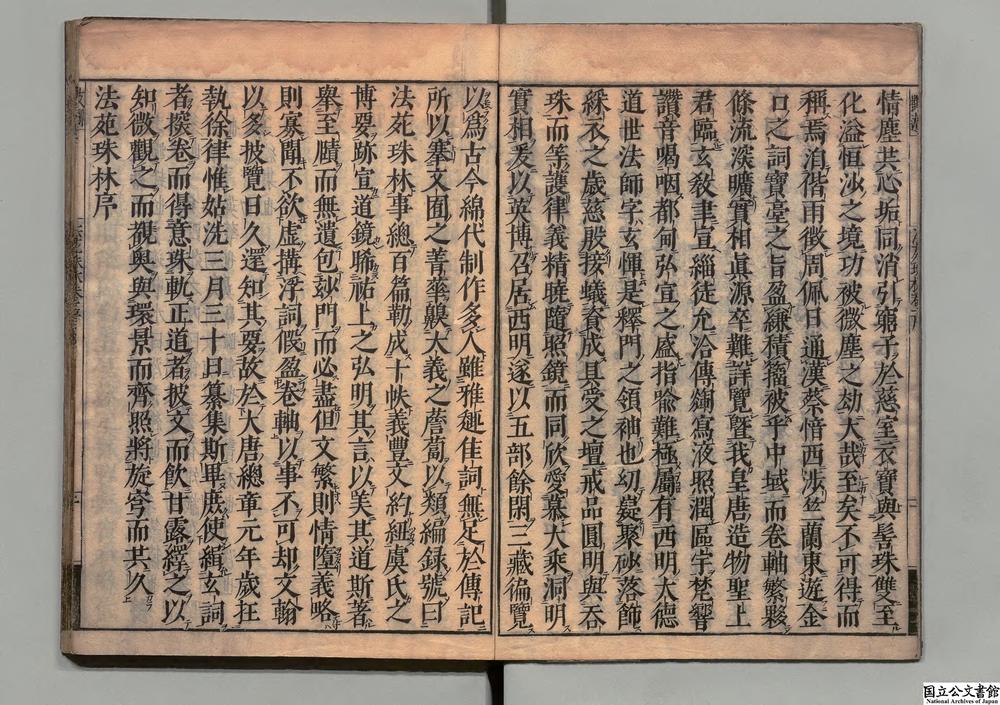 情塵共心垢同消引窮子於慈室衣寶與髻珠雙至
化溢恒沙之境功被微塵之劫大哉至矣不可得而
稱焉洎偕雨徵周佩日通漢蔡愔西涉竺蘭東遊金
口之詞寶臺之旨盈縑積籀被乎中域而卷軸繁夥
條流深曠實相眞源卒難詳覽暨我皇唐造物聖上
君臨玄敎聿宣緇徒允洽傳網寫液照潤區宇梵響
讚音唱咽都甸弘宣之盛指喩難極屬有西明大德
道世法師字玄惲是釋門之領袖也幼嶷聚砂落飾
綵衣之歲慈殷接蟻資成具受之壇戒品圓明與吞
珠而等護律義精曉隨照鏡而同欣愛慕大乘洞明
實相爰以英博召居西明遂以五部餘閑三藏徧覽
以爲古今綿代制作多人雖雅趣佳詞無足於傳記
所以搴文囿之菁華嗅大義之薝蔔以類編錄號曰
法苑珠林事總百篇勒成十帙義豐文約紐虞氏之
博要跡宣道鏡晞祐上之弘明其言以美其道斯著
擧至賾而無遺包妙門而必盡但文繁則情墮義略
則寡聞不欲虛搆浮詞假盈卷軸以事不可却文翰
以多披覽日久還知其要故於大唐總章元年歲在
執徐律惟姑洗三月三十日纂集斯畢庶使緝玄詞
者探卷而得意珠軌正道者披文而飮甘露繹之以
知微觀之而覩奥與環景而齊照將旋穹而共久
法苑珠林序
国立公文書館
National Archives of Japan